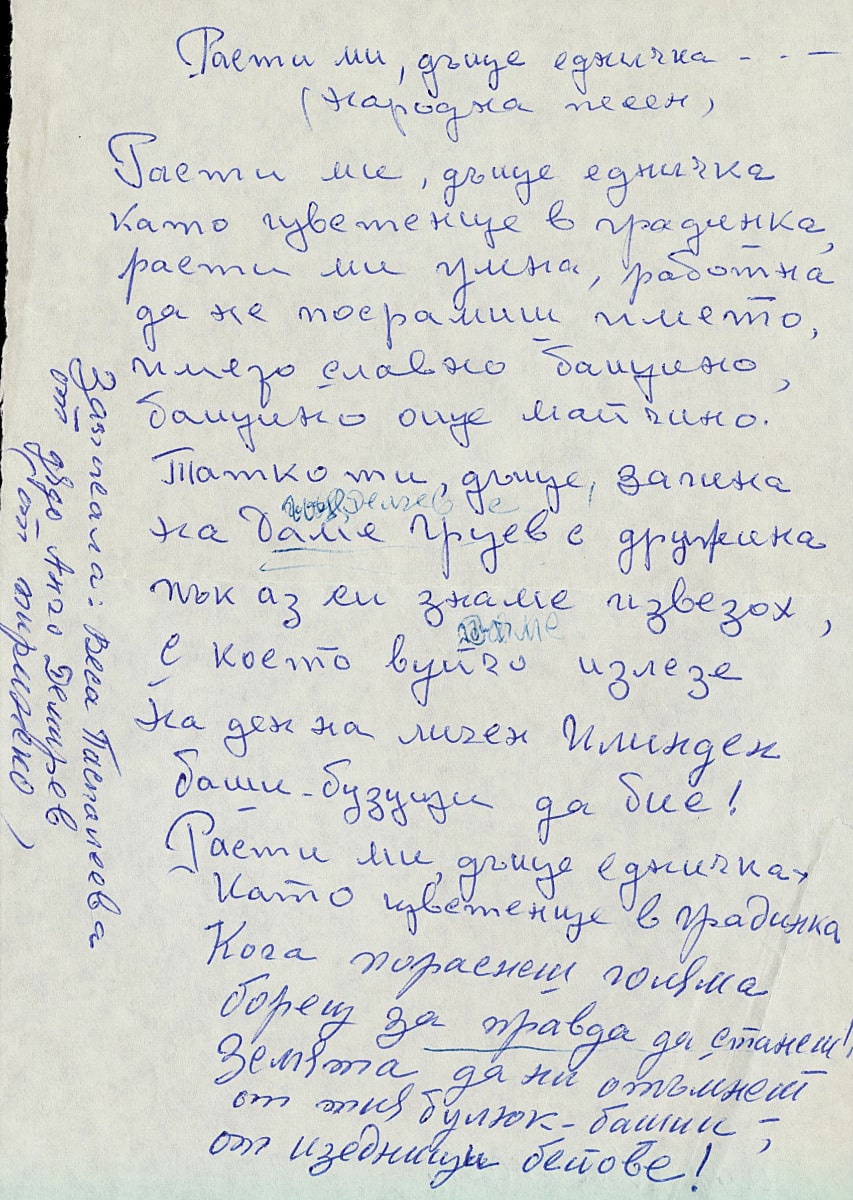 Расти ми, дъще едничка - . . -
(Народна песен)
Расти ми, дъще едничка
като цветенце в градинка,
расти ми умна, работна
да не посрамиш името,
името славно бащино,
бащино още майчино.
Татко ти, дъще, загина
Делчев с
на Даме Груев с дружина
пък аз ви знаме извезох,
с което вуйчо излезе
На ден на личен Илинден
баши-бузуци да бие!
Расти ми, дъще едничка,
Като цветенце в градинка
Кога пораснеш голяма
борец за правда да станеш!
Земята да ни отъмнеш
от тия булюк-башии,
от изедници бейове!
Запис​ала: Веса Паспалеева
от дядо Анго Демирев